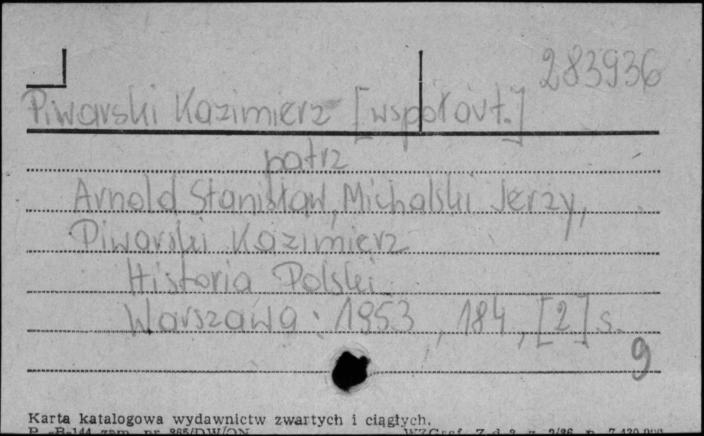 283936
Piwarski Kazimierz [współaut.]
patrz
Arnold Stanisław, Michalski Jerzy,
Piwarski Kazimierz
Historia Polski.
Warszawa : 1953, 184, [2] s.
9
Karta katalogowa wydawnictw zwartych i ciągłych.
P.-B-144 zam. nr 865/DW/ON